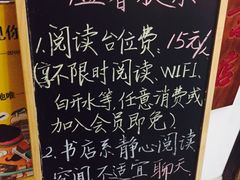 1.阅读台位费、15元/
(享不限时阅读、WIFI、
白开水等,任意消费或
加入会员即免)
2.书店系静心阅读
空间不适宜聊天